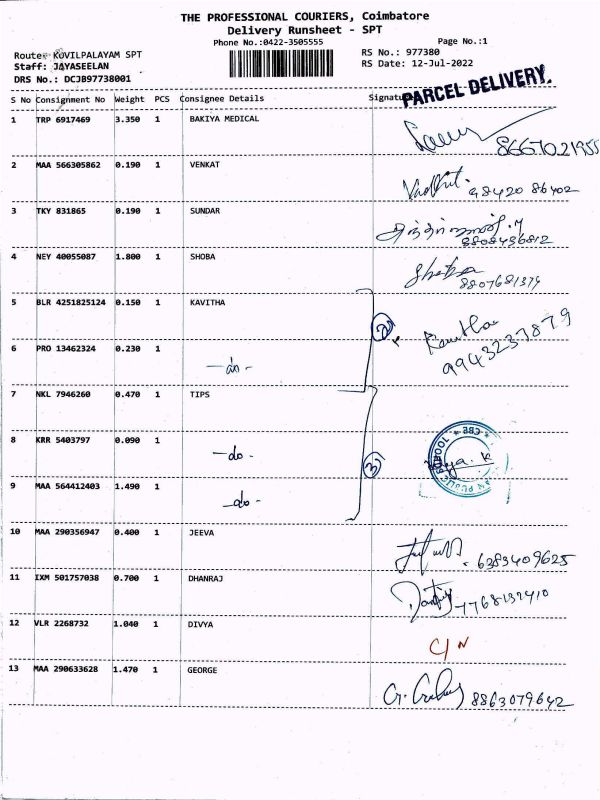 THE PROFESSIONAL COURIERS, Coimbatore
Delivery Runsheet - SPT
Phone No.:0422-3505555
Page No.:1
Route: KOVILPALAYAM SPT
RS No.: 977380
Staff: JAYASEELAN
RS Date: 12-Jul-2022
DRS No.: DCJB97738001
PARCEL DELIVERY.
S No Consignment No Weight PCS Consignee Details Signature
1 TRP 6917469 3.350 1 BAKIYA MEDICAL
8667021955
2 MAA 566305862 0.190 1 VENKAT
98420 86402
3 TKY 831865 0.190 1 SUNDAR
8808436812
4 NEY 40055087 1.800 1 SHOBA
Shoba
8807681379
5 BLR 4251825124 0.150 1 KAVITHA
2 Kavitha
9943237879
6 PRO 13462324 0.230 1
-do-
7 NKL 7946260 0.470 1 TIPS
8 KRR 5403797 0.090 1
-do- 3
9 MAA 564412403 1.490 1
-do-
10 MAA 290356947 0.400 1 JEEVA
6383409625
11 IXM 501757038 0.700 1 DHANRAJ
7768132410
12 VLR 2268732 1.040 1 DIVYA
C/N
13 MAA 290633628 1.470 1 GEORGE
8863079642